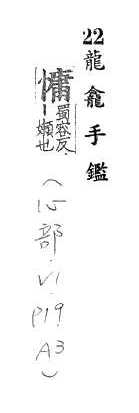 22龍龕手鑑
慵蜀容反.
｜嬾也
(心部.VI.P19 A3)